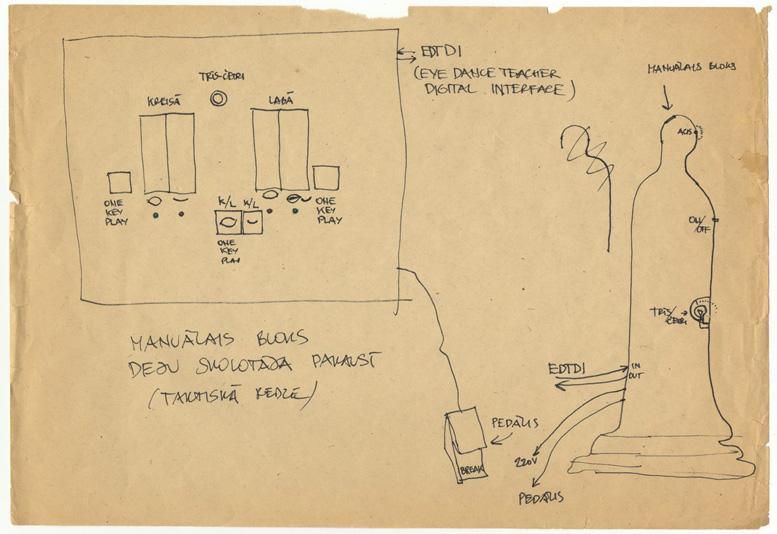 EDTDI
(EYE DANCE TEACHER
DIGITAL INTERFACE)
TRĪS-ČETRI
KREISĀ
LABĀ
ONE
KEY
PLAY
K/L
K/L
ONE
KEY
PLAY
ONE
KEY
PLAY
MANUĀLAIS BLOKS
DEJU SKOLOTĀJA PAKAUSĪ
(TAKTISKĀ
PEDĀLIS
BREAK
MANUĀLAIS BLOKS
ACIS
ON/
OFF
TRĪS/
ČETRI
EDTDI
IN
OUT
220V
PEDĀLIS